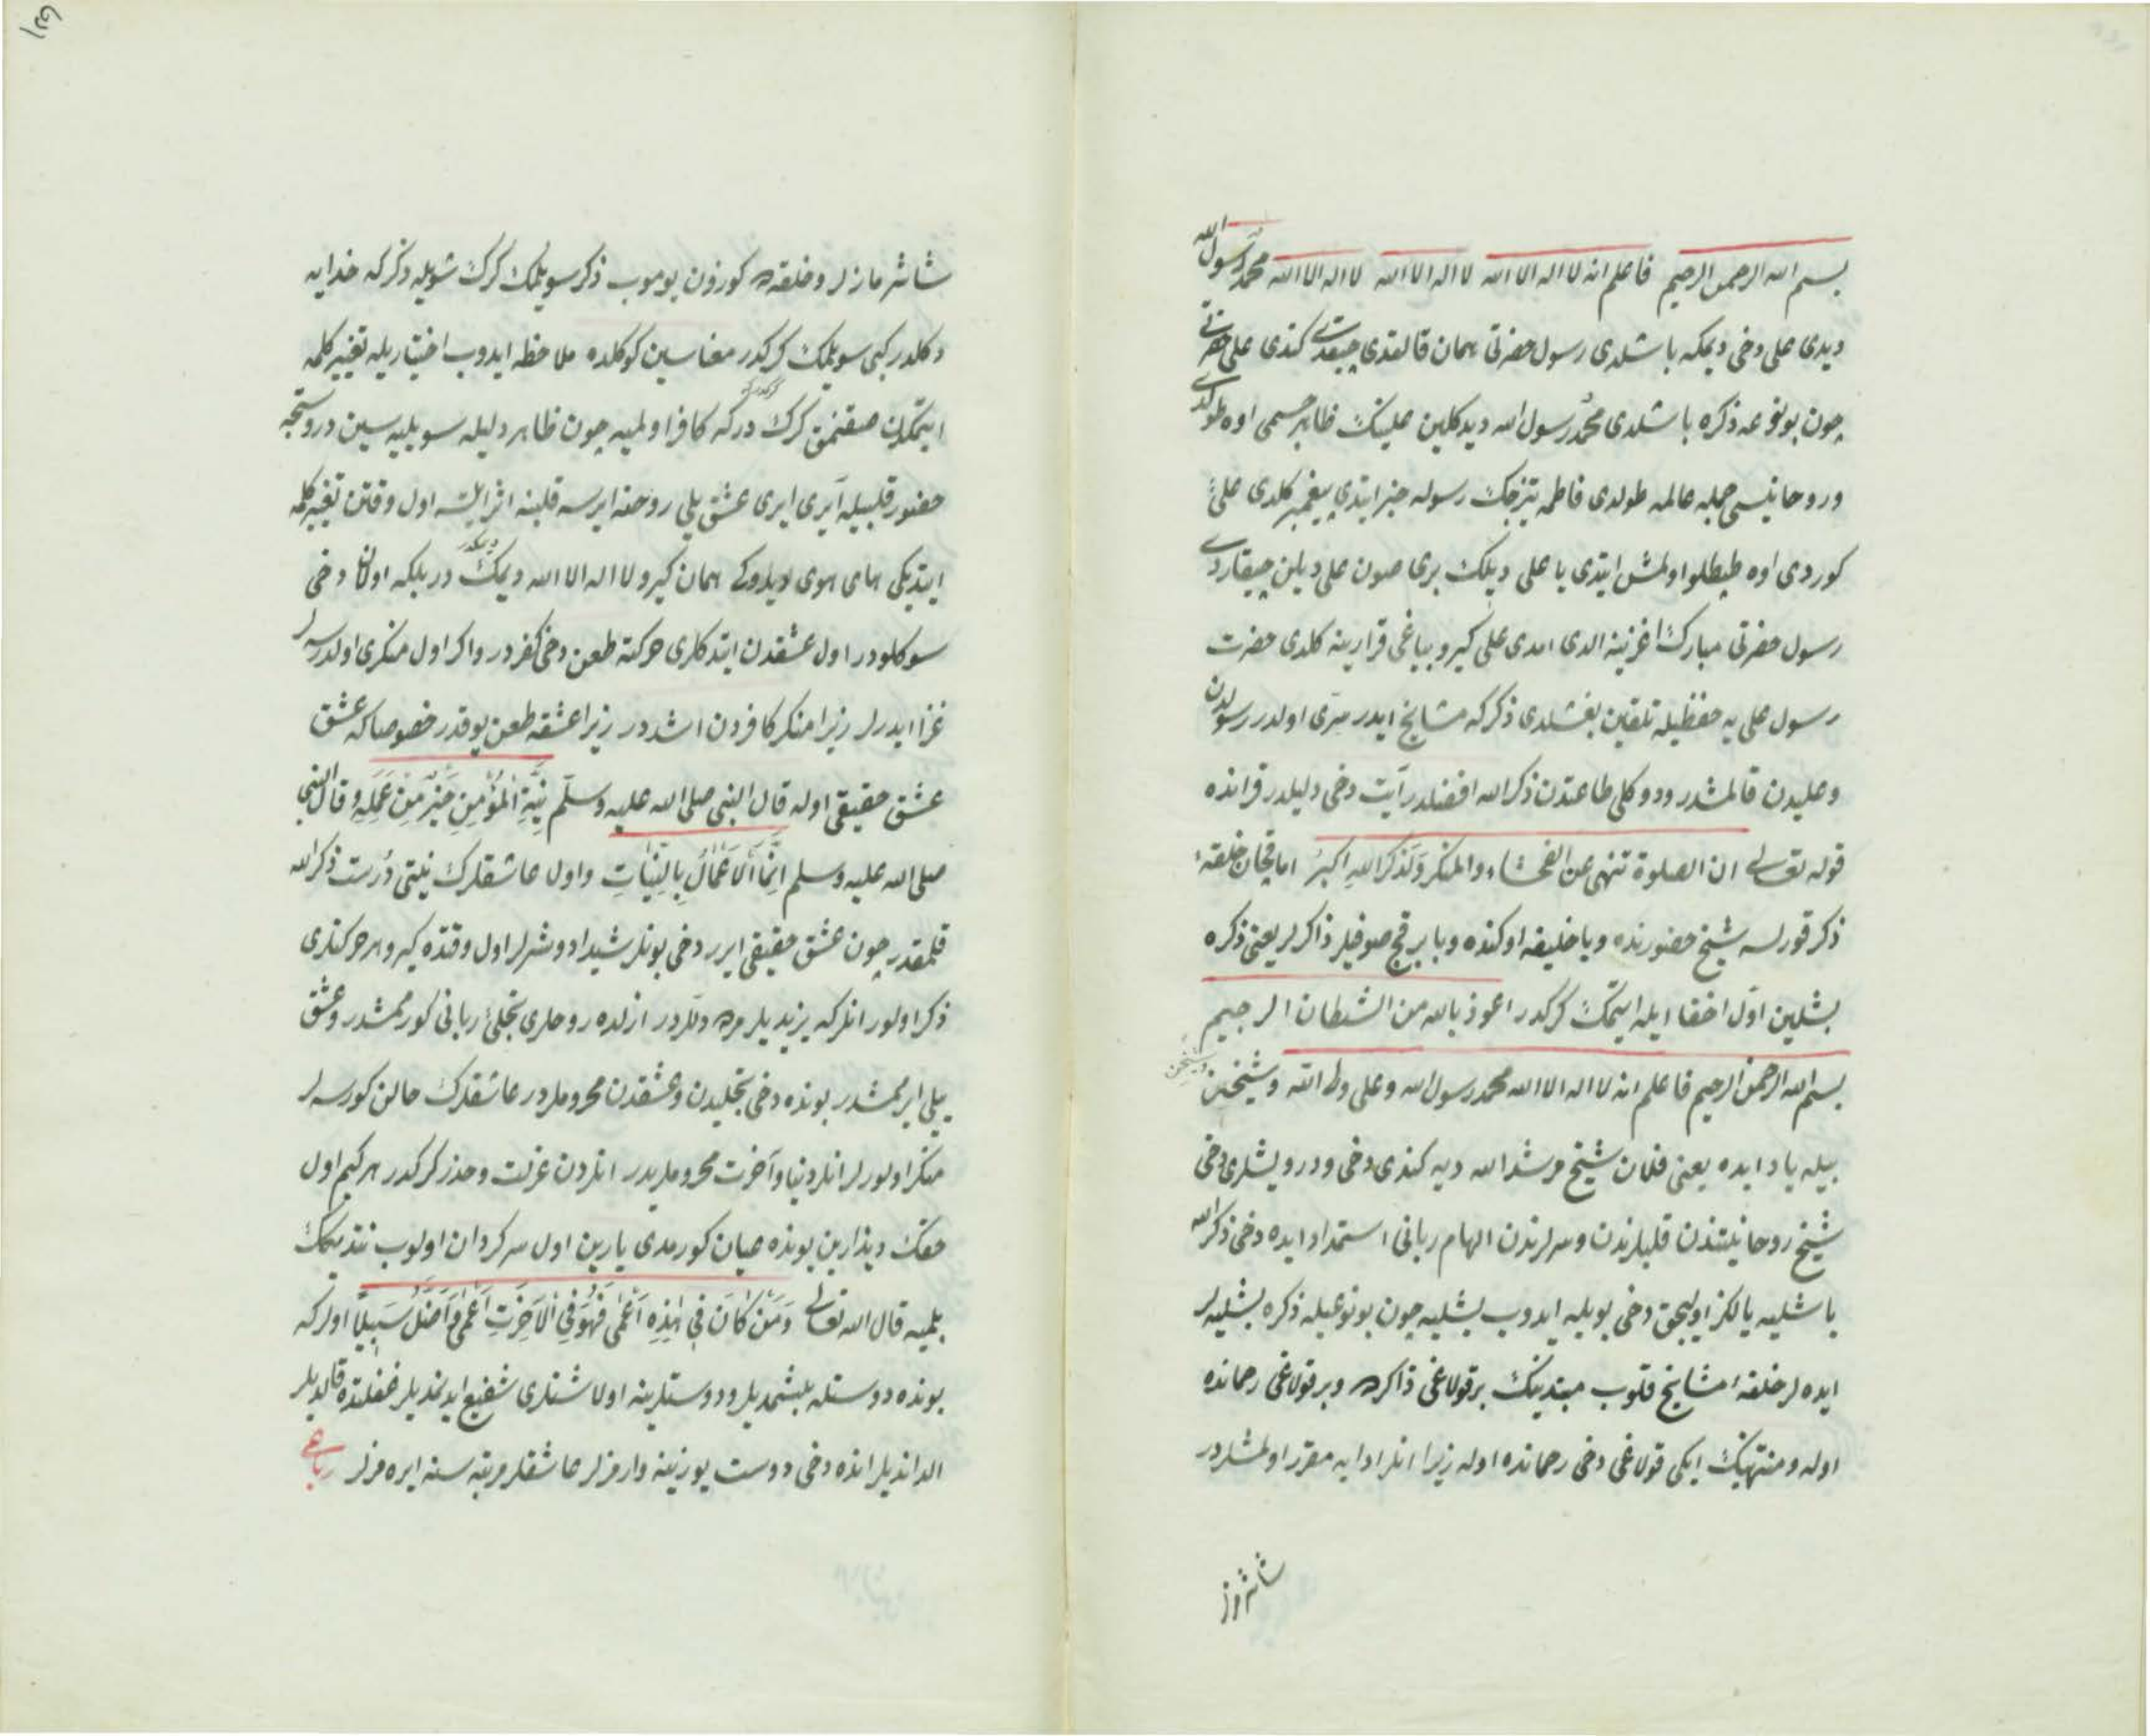 بسم الله الرحمن الرحيم فاعلم انه لا اله الا الله لا اله الا الله لا اله الا الله محمد رسول الله
ديدى على دخى ديمكه باشلدى رسول حضرتى همان قالقدى چيقدى كتدى على حضرتى
چون بو نوعه ذكره باشلدى محمد رسول الله ديدكلين علينك ظاهر جسمى اوه طولدى
و روحانيسى جمله عالمه طولدى فاطمه تيزجك رسوله خبر ايتدى پيغمبر كلدى على
كوردى اوه طپطلو اولمش ايتدى يا على ديلك برى صون على ديلين چيقاردى
رسول حضرتى مبارك اغزينه الدى امدى على كيرو بياغى قرارينه كلدى حضرت
رسول على يه حفظيله تلقين بغشلدى ذكر كه مشايخ ايدر سرى اولدر رسولدن
و عليدن قالمشدر ودوكلى طاعتدن ذكر الله افضلدر آيت دخى دليلدر قرانده
قوله تعالى ان الصلوة تنهى عن الفحشاء والمنكر ولذكر الله اكبر اما قچان خلقهٔ
ذكر قورلسه شيخ حضورنده ويا خليفه اوكنده ويا بر قچ صوفيلر ذاكرلر يعنى ذكره
بشلين اول اخفا ايله ايتمك كركدر اعوذ بالله من الشيطان الرجيم
بسم الله الرحمن الرحيم فاعلم انه لا اله الا الله محمد رسول الله وعلى ولى الله وشيخن
بيله ياد ايده يعنى فلان شيخ مرشد الله ديه كندى دخى ودرويشلرى دخى
شيخ روحانيتندن قلبلرندن وسرلرندن الهام ربانى استمداد ايده دخى ذكر الله
باشليه يالكز اوليجق دخى بويله ايدوب بشليه چون بو نوعيله ذكره بشليه لر
ايده لر خلقهٔ مشايخ قلوب مبتدينك بر قولاغى ذاكره وبر قولاغى رحمانده
اوله و منتهينك ايكى قولاغى دخى رحمانده اوله زيرا انلر ادايه مقرر اولمشلردر
شاشروز
شاشرمازلر وخلقه ده كوزون يوموب ذكر سويلمك كرك شويله دكر كه خدايه
دكلدر كبى سويلمك كركدر معناسين كوكلده ملاحظه ايدوب اختياريله تغيير كلمه
ايتمكدن صقنمق كركدر كه كافر اولميه چون ظاهر دليله سويليه سين
حضور قلبيله آيرى ايرى عشق يلى روحنه ايرسه قلبنه اثر ايلسه اول وقتن تغيير كلمه
ايتديكى هاى هوى همان كيرو لا اله الا الله ديمكدر بلكه اولكا دخى
سوكلودر اول عشقدن ايتدكلرى حركته طعن دخى كفردر واكر اول منكرى اولدرسه لر
غزا ايدرلر زيرا منكر كافردن اشددر زيرا عشقه طعن يوقدر خصوصا كه عشق
عشق حقيقى اوله قال النبى صلى الله عليه وسلم نِيَّةُ الْمُؤْمِنِ خَيْرٌ مِنْ عَمَلِهِ وقال النبى
صلى الله عليه وسلم اِنَّمَا الْاَعْمَالُ بِالنِّيَّاتِ واول عاشقلرك نيتى درست ذكر الله
قلمقدر چون عشق حقيقى ايرر دخى بونلر شيدا دوشرلر اول وقتده كيرو هر حركتلرى
ذكر اولور انلر كه يزيديلر مرده دللردر ازلده روحلرى تجلئ ربانى كورممشدر وعشق
يلى ايرممشدر بونده دخى تجليدن وعشقدن محروملردر عاشقلرك حالن كورسه لر
منكر اولورلر انلر دنيا و آخرت محروملريدر انلردن عزلت وحذر كركدر هر كيم اول
حقك ديدارين بونده عيان كورمدى يارين اول سركردان اولوب نتدمك
بلميه قال الله تعالى وَمَنْ كَانَ فِى هٰذِهِ اَعْمٰى فَهُوَ فِى الْاٰخِرَةِ اَعْمٰى وَاَضَلُّ سَبِيلًا انلر كه
بونده دوستله بلشمديلر ودوستلرينه اولاشنلرى شفيع ايدنمديلر غفلتده قالديلر
الدانديلر انده دخى دوست يوزينه وارمزلر عاشقلر مرتبه سنه ايره مزلر رباعى